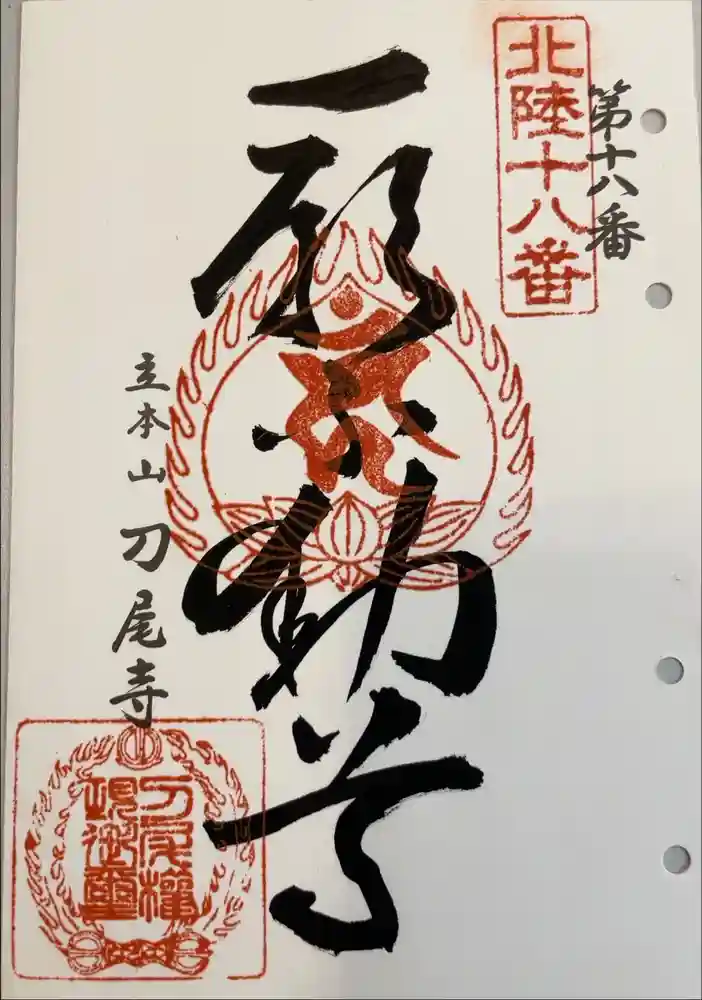 第十八番
北陸十八番
一願不動尊
立本山 刀尾寺
刀尾權
現御